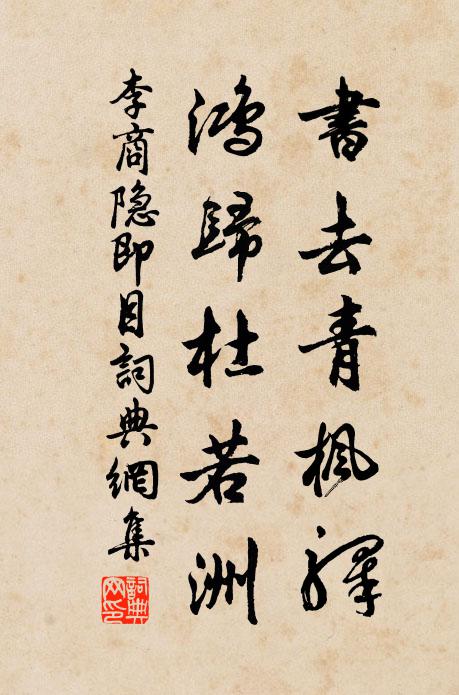 書去青楓驛
鴻歸杜若洲
李商隐即目詞典網集
詞典
网印